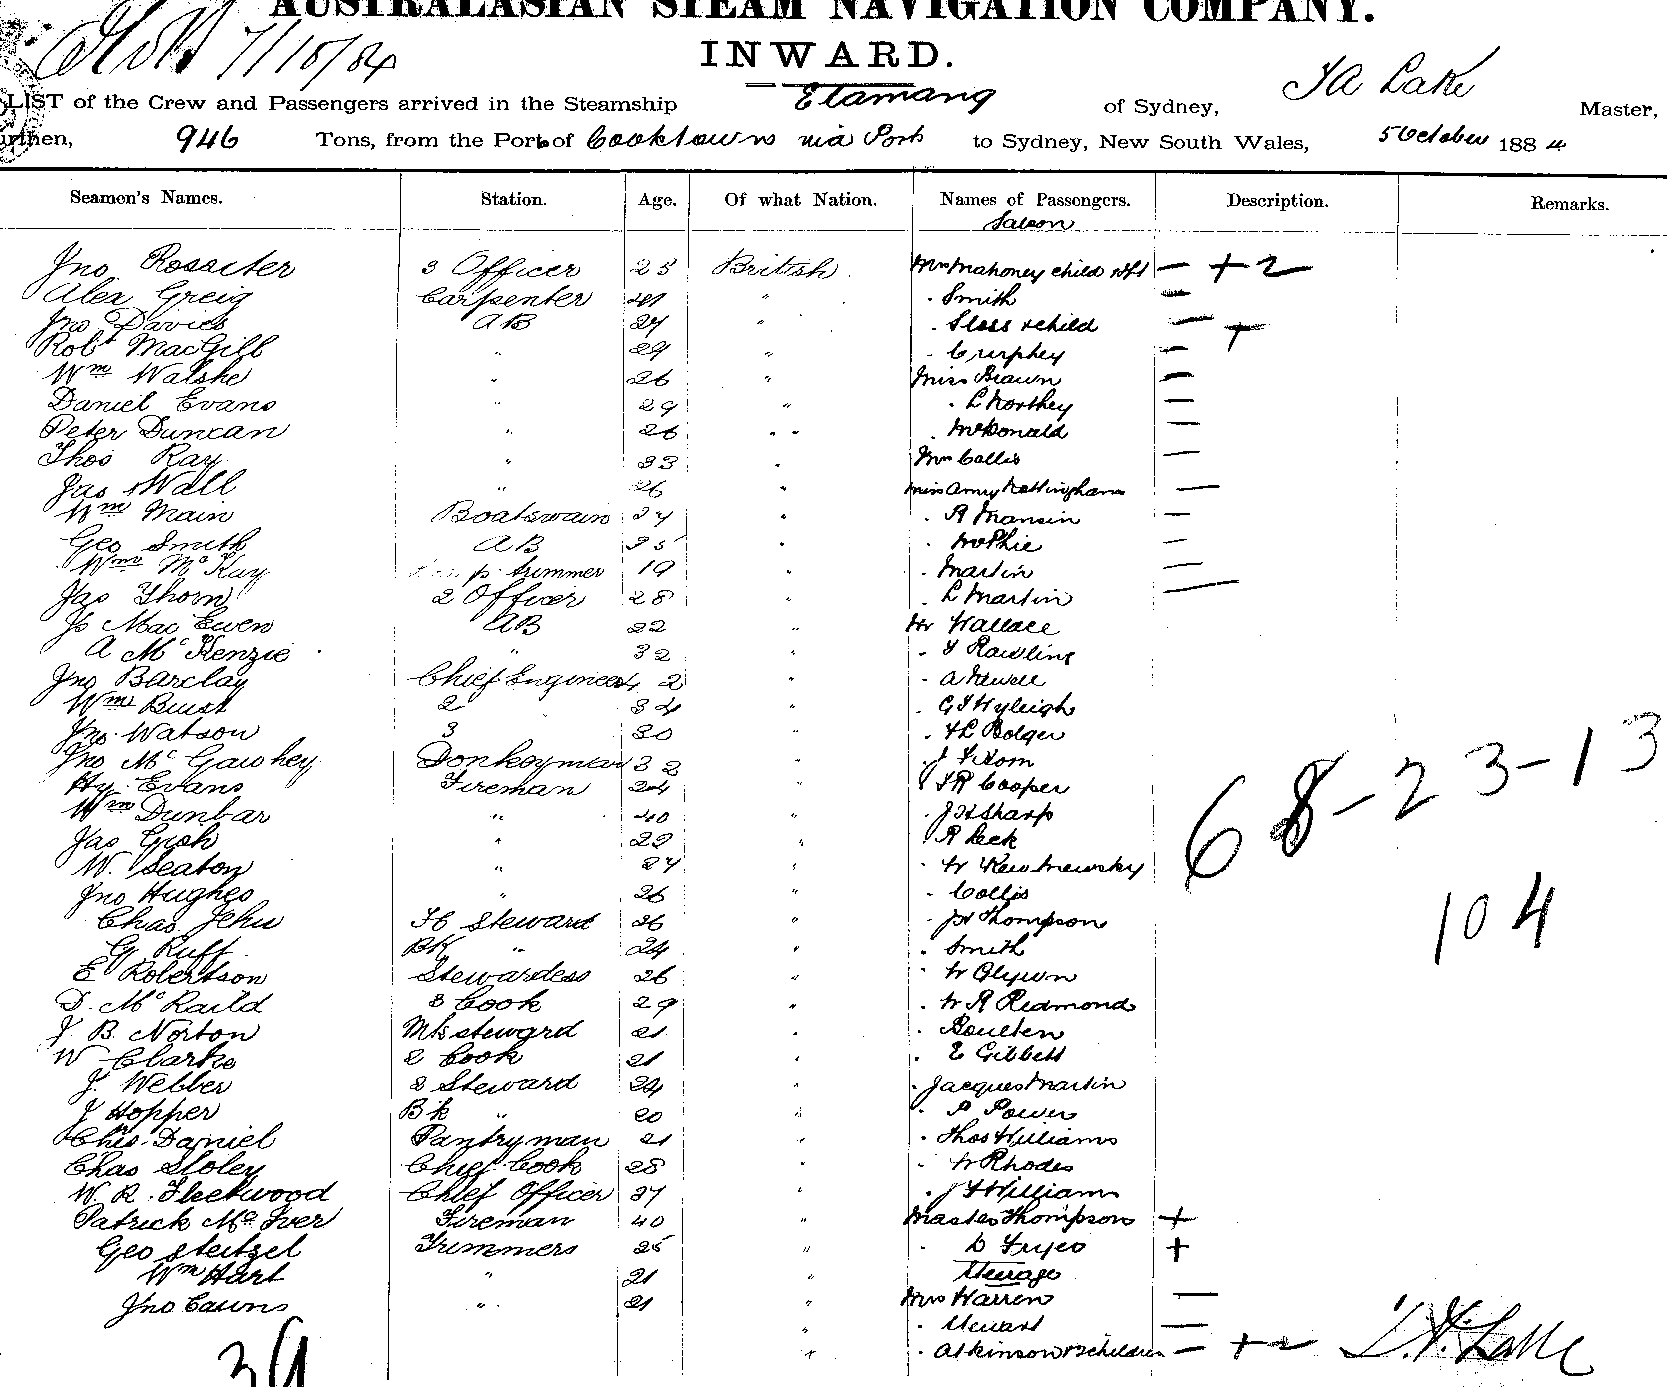 AUSTRALASIAN STEAM NAVIGATION COMPANY.
7/10/84
INWARD.
LIST of the Crew and Passengers arrived in the Steamship Elamang of Sydney, TA Lake Master,
946 Tons, from the Port of Cooktown via Ports to Sydney, New South Wales, 5 October 1884
Seamen's Names. Station. Age. Of what Nation. Names of Passengers. Description. Remarks.
Saloon
Jno Rossiter 3 Officer 25 British Mrs Mahoney child — + 2
Alex Greig Carpenter 41 " " Smith —
Jno Davies AB 27 " " Sloss & child — +
Robt MacGill " 29 " " —
Wm Walshe " 26 " Miss Brown —
Daniel Evans " 29 " " L Northey —
Peter Duncan " 26 " " McDonald —
Thos Ray " 33 " Mrs Collis —
Jas Wall " 26 " Miss Amy Nottingham —
Wm Main Boatswain 34 " " R —
Geo Smith AB 35 " " McPhie —
Wm McKay trimmer 19 " " Martin —
Jas Thorn 2 Officer 28 " " L Martin —
Jo MacEwen AB 22 " Mr Wallace
A McKenzie " 32 " " Rawling
Jno Barclay Chief Engineer 42 " " A Newell
Wm Buist 2 34 " "
Jno Watson 3 30 " " Bolger
Jno McGawhey Donkeyman 32 " "
Hy Evans Fireman 24 " " Cooper
Wm Dunbar " 40 " " J H Sharp
Jas Gish " 29 " " R Peck
W. Seaton " 27 " "
Jno Hughes " 26 " " Collis
Chas Jehu Steward 26 " " Thompson
G Ruff BK " 24 " " Smith
E Robertson Stewardess 26 " "
D. McRaild 3 Cook 29 " " W R Redmond
J B. Norton steward 21 " " Boulten
W Clarke 2 Cook 21 " " E Gibbett
J. Webber 2 Steward 24 " " Jacques Martin
J Hopper Bk " 20 " " P Power
Chas Daniel Pantryman 21 " " Thos Williams
Chas Sloley Chief Cook 28 " " W Rhodes
W. R. Fleetwood Chief Officer 37 " " Williams
Patrick McIver Fireman 40 " Master Thompson +
Geo Steitzel Trimmers 25 " " D +
Wm Hart " 21 " Steerage
Jno Cawns " 21 " Mrs Warren —
" " Stewart —
" " Atkinson & 2 children — + 2
68-23-13
104
39